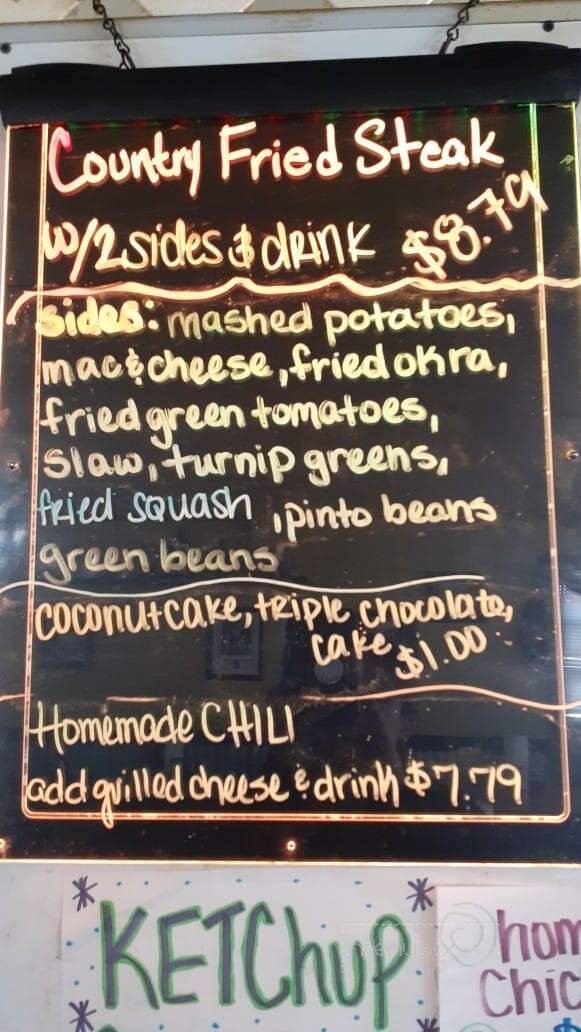 Country Fried Steak
w/2 sides & drink $8.79
sides: mashed potatoes,
mac & cheese, fried okra,
fried green tomatoes,
slaw, turnip greens,
fried squash, pinto beans
green beans
coconut cake, triple chocolate,
cake $1.00
Homemade CHILI
add grilled cheese & drink $7.79
KETChuP
hom
Chic